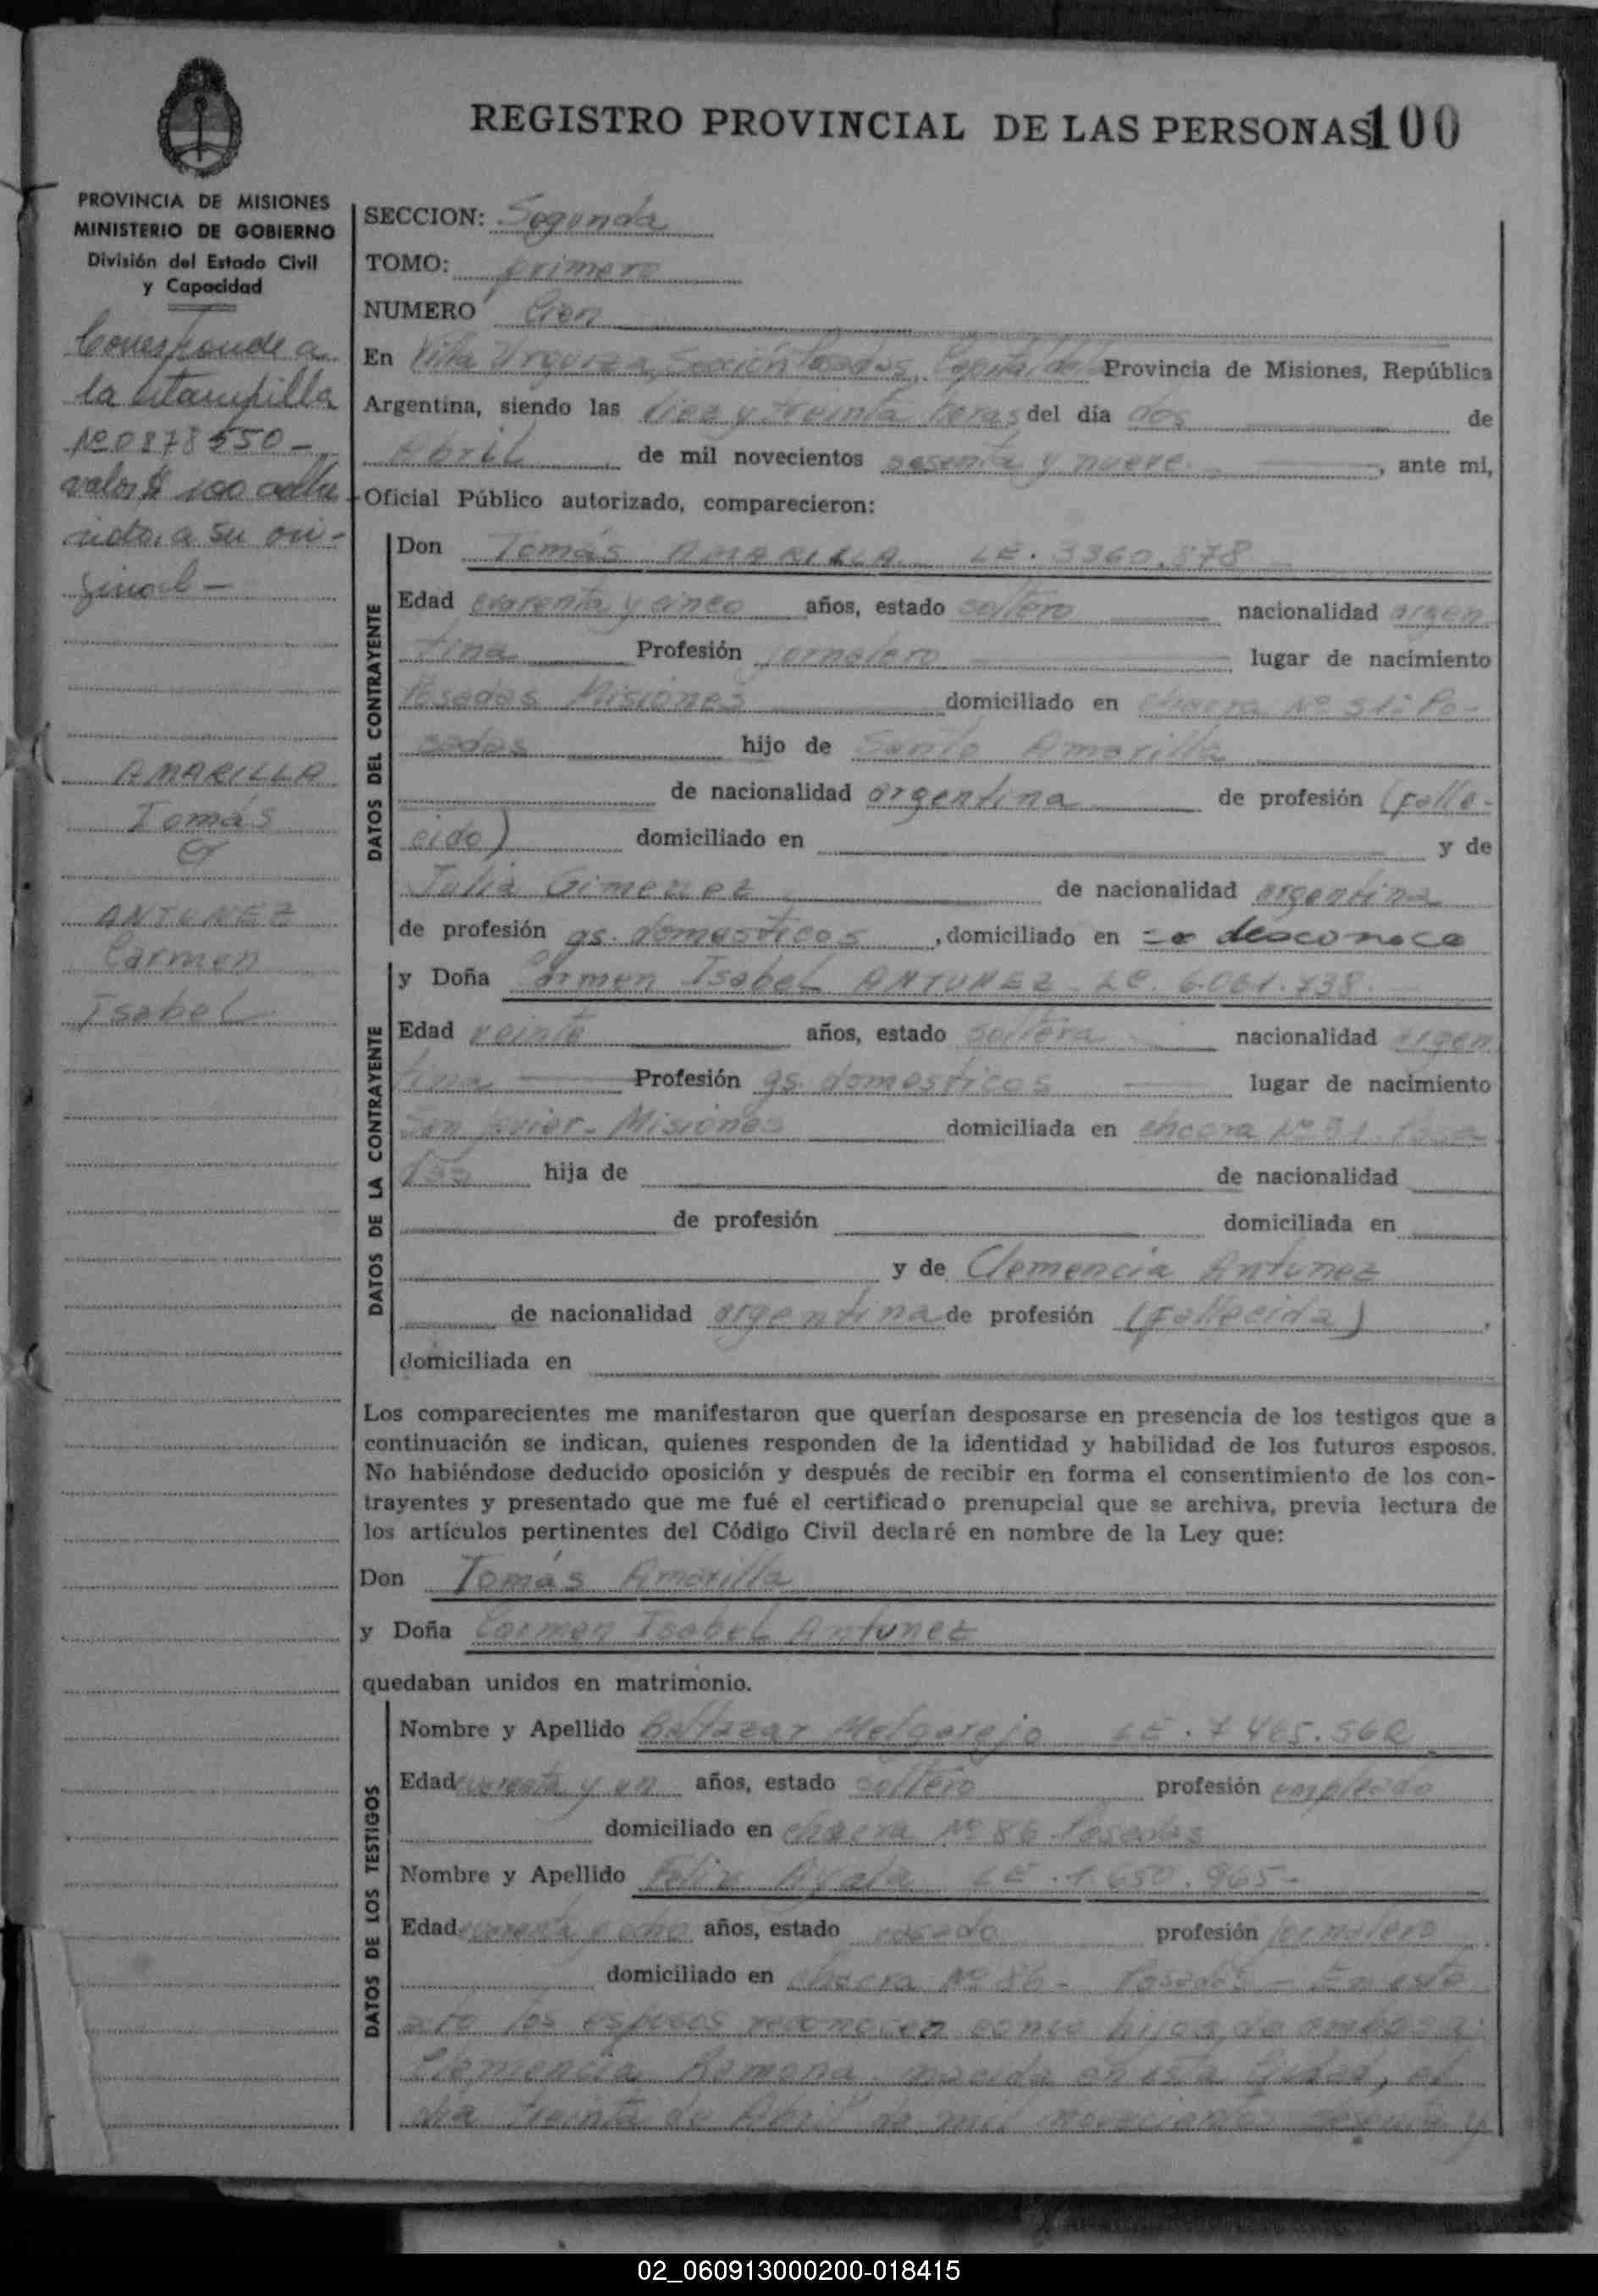 REGISTRO PROVINCIAL DE LAS PERSONAS 100
PROVINCIA DE MISIONES
MINISTERIO DE GOBIERNO
División del Estado Civil
y Capacidad
Corresponde a
la estampilla
Nº 0878550-
valor $ 100 adhe
rida, a su ori-
ginal-
AMARILLA
Tomás
ANTUNEZ
Carmen
Isabel
SECCION: Segunda
TOMO: primero
NUMERO Cien
En Villa Urquiza, Sección Posadas, Capital de la Provincia de Misiones, República
Argentina, siendo las diez y treinta horas del día dos de
Abril de mil novecientos sesenta y nueve, ante mi,
Oficial Público autorizado, comparecieron:
DATOS DEL CONTRAYENTE
Don Tomás AMARILLA LE. 3360.878
Edad cuarenta y cinco años, estado soltero nacionalidad argen
tina Profesión jornalero lugar de nacimiento
Posadas Misiones domiciliado en chacra Nº 31- Po-
sadas hijo de Santo Amarilla
de nacionalidad argentina de profesión (falle-
cido) domiciliado en y de
Julia Gimenez de nacionalidad argentina
de profesión qs. domesticos, domiciliado en se desconoce
DATOS DE LA CONTRAYENTE
y Doña Carmen Isabel ANTUNEZ LC. 6.061.738
Edad veinte años, estado soltera nacionalidad argen
tina Profesión qs. domesticos lugar de nacimiento
San Javier- Misiones domiciliada en chacra Nº 31 Posa
das hija de de nacionalidad
de profesión domiciliada en
y de Clemencia Antunez
de nacionalidad argentina de profesión (fallecida),
domiciliada en
Los comparecientes me manifestaron que querían desposarse en presencia de los testigos que a
continuación se indican, quienes responden de la identidad y habilidad de los futuros esposos.
No habiéndose deducido oposición y después de recibir en forma el consentimiento de los con-
trayentes y presentado que me fué el certificado prenupcial que se archiva, previa lectura de
los artículos pertinentes del Código Civil declaré en nombre de la Ley que:
Don Tomás Amarilla
y Doña Carmen Isabel Antunez
quedaban unidos en matrimonio.
DATOS DE LOS TESTIGOS
Nombre y Apellido Baltazar Melgarejo LE. 7465.562
Edad cuarenta y un años, estado soltero profesión empleado
domiciliado en chacra Nº 86 Posadas
Nombre y Apellido Felix Ayala LE. 1.650.965-
Edad cuarenta y ocho años, estado casado profesión jornalero
domiciliado en chacra Nº 86- Posadas- En este
acto los esposos reconocen como hijos de ambos a:
Clemencia Ramona, nacida en esta ciudad, el
dia treinta de Abril de mil novecientos sesenta y
02_060913000200-018415